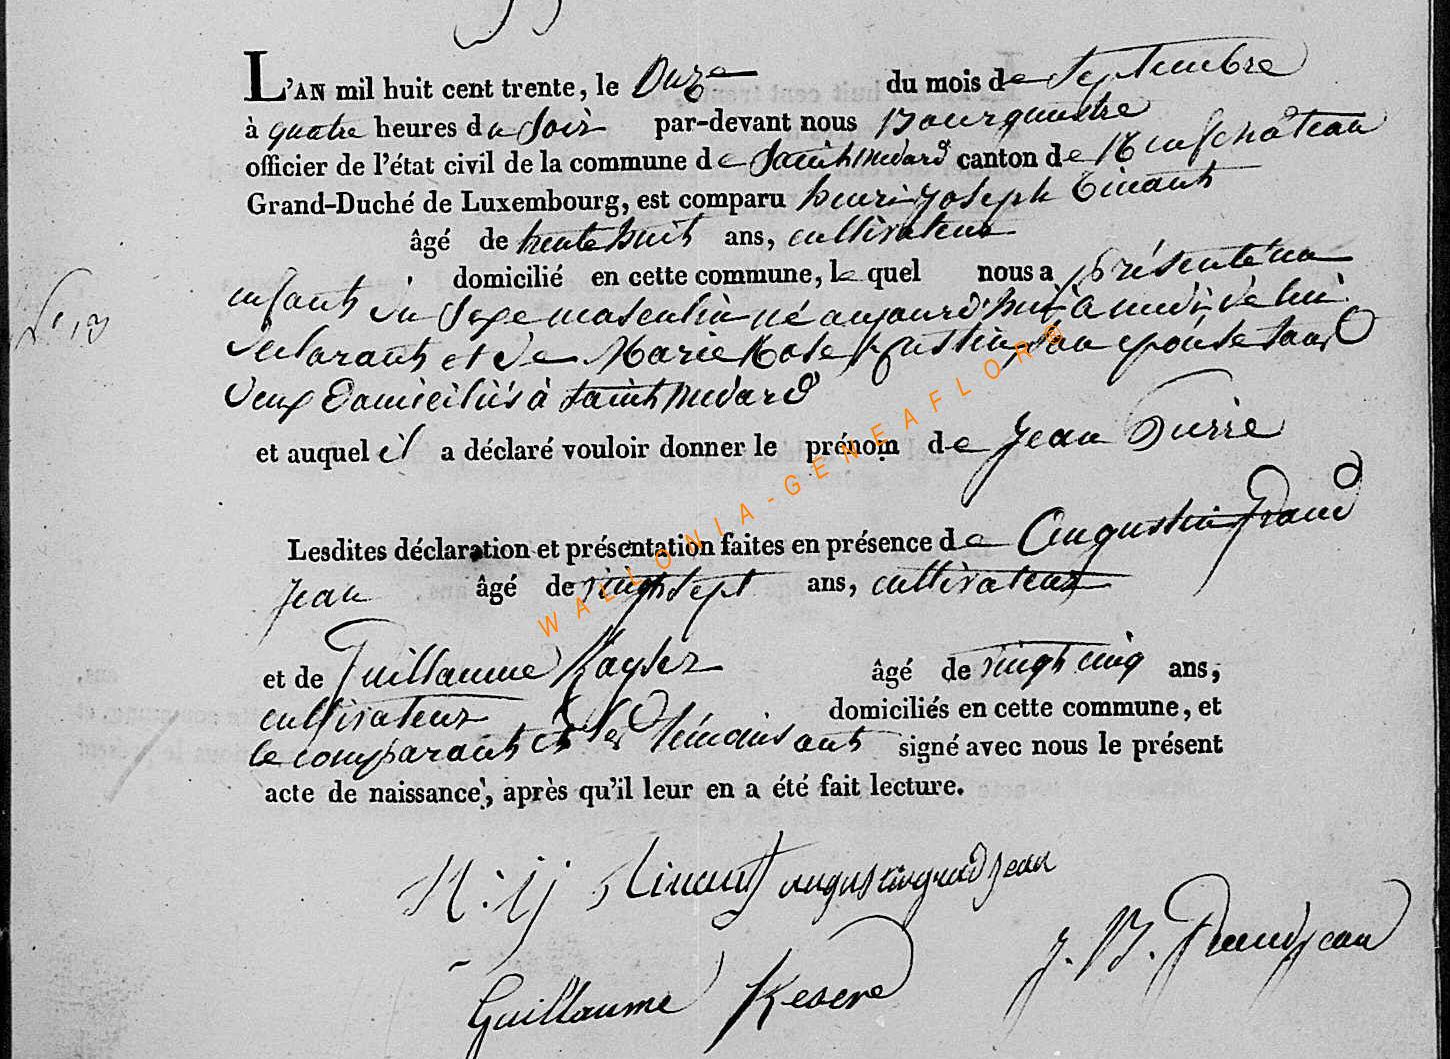 L'AN mil huit cent trente, le Onze du mois de Septembre
à quatre heures du soir par-devant nous Bourgmestre
officier de l'état civil de la commune de Saint Médard canton de Neufchâteau
Grand-Duché de Luxembourg, est comparu henri joseph Tinant
âgé de trente huit ans, cultivateur
domicilié en cette commune, le quel nous a présenté un
enfant du sexe masculin né aujourd'hui à midi de lui
N° 13
déclarant et de Marie Rose son épouse tous
deux domiciliés à Saint Médard
et auquel il a déclaré vouloir donner le prénom de jean
Lesdites déclaration et présentation faites en présence de Augustin Grand
jean âgé de vingt sept ans, cultivateur
et de Guillaume Kayser âgé de vingt cinq ans,
cultivateur domiciliés en cette commune, et
le comparant et les témoins ont signé avec nous le présent
acte de naissance, après qu'il leur en a été fait lecture.
H. j Tinant augustin grand jean
j. B. Grandjean
Guillaume
WALLONIA-GENEAFLOR®